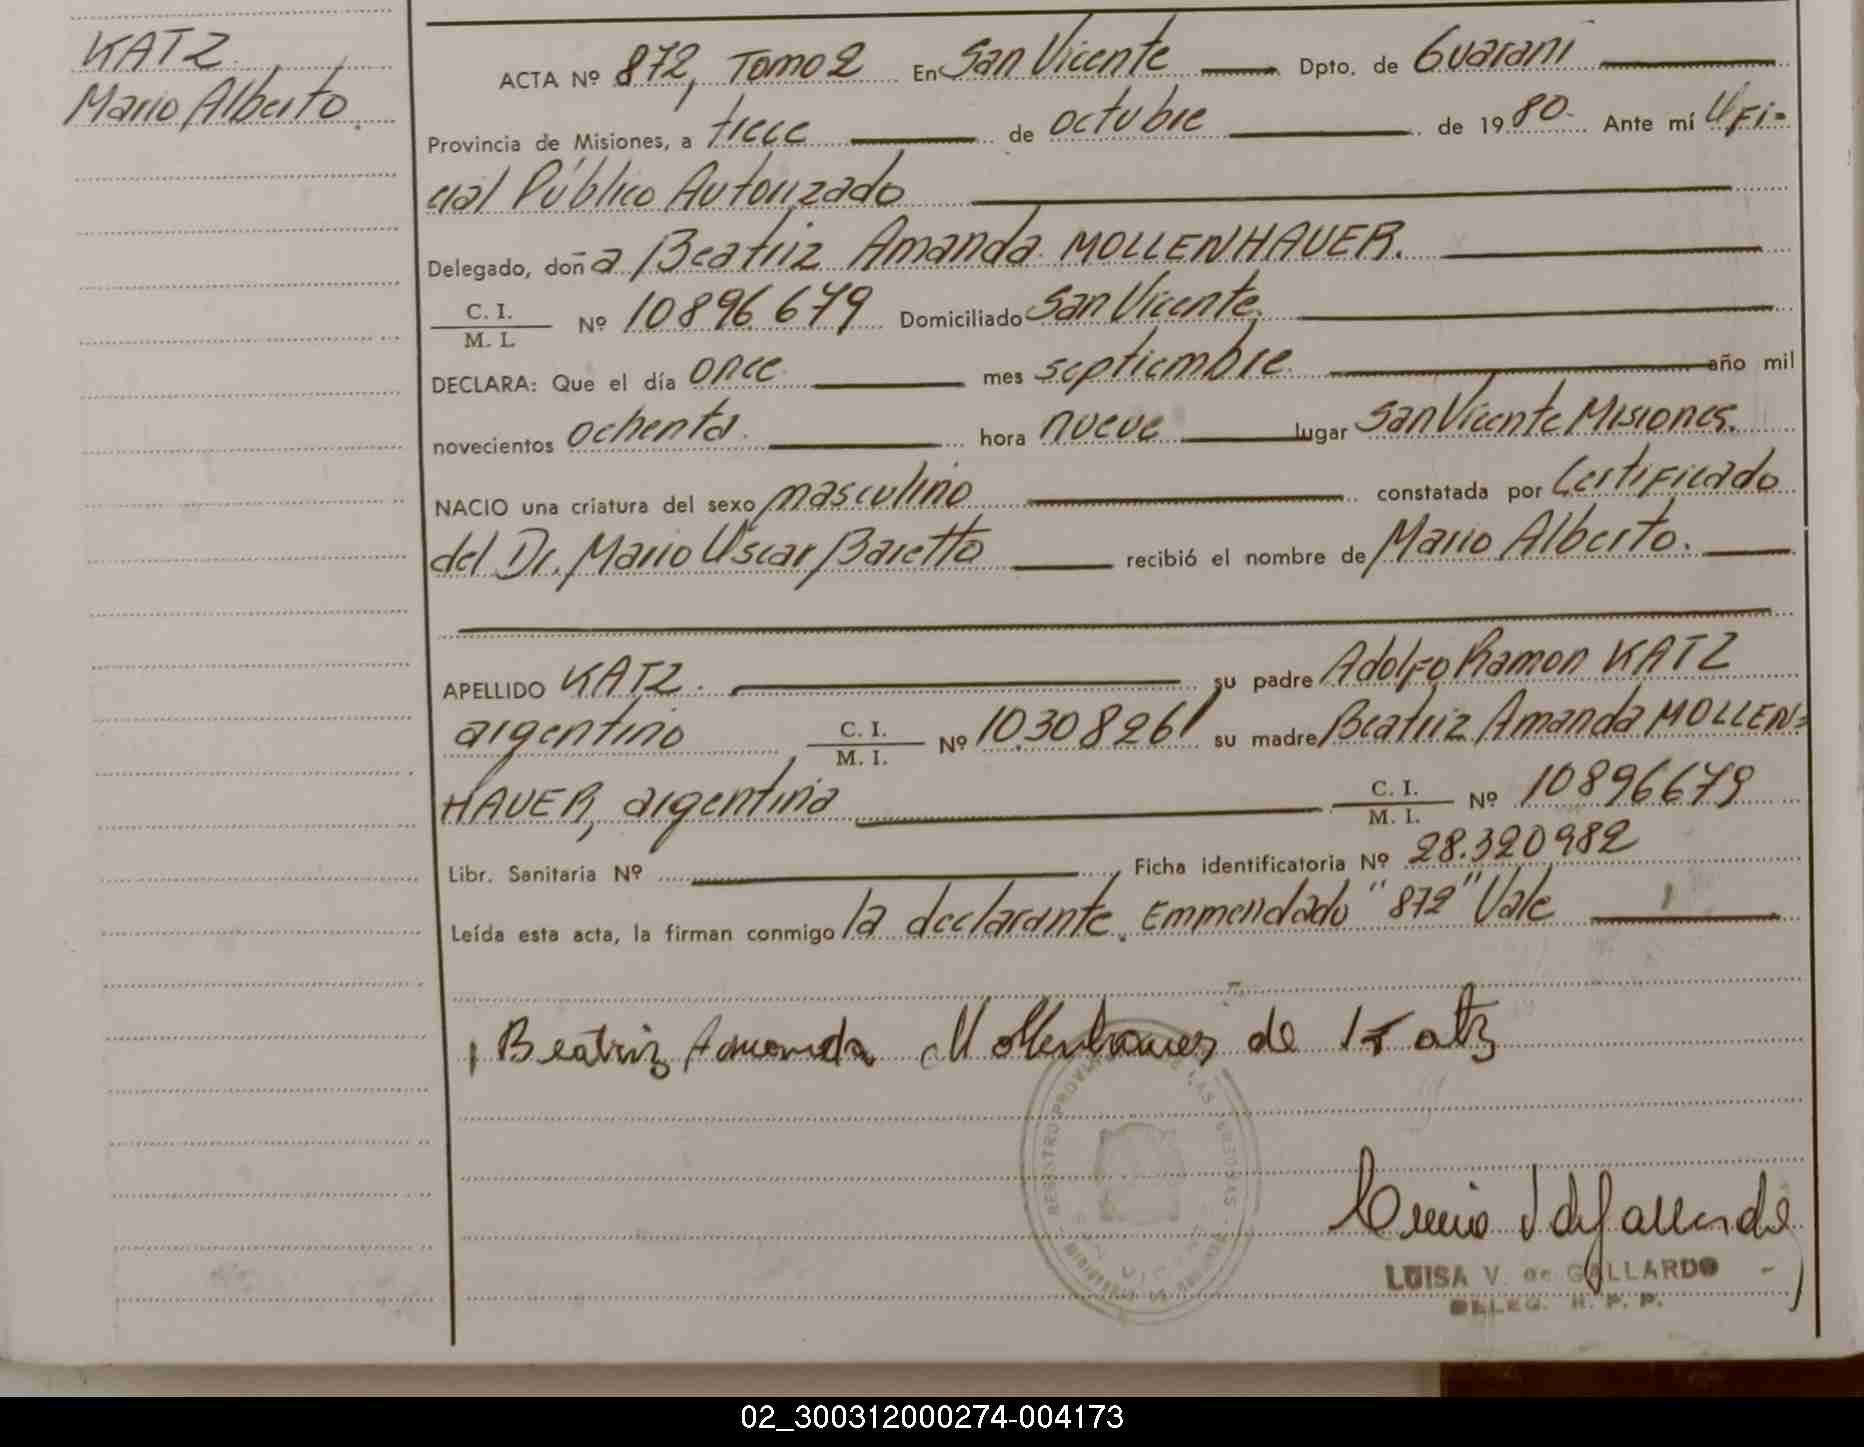 KATZ
Mario Alberto.
ACTA Nº 872, Tomo 2 En San Vicente Dpto. de Guaraní
Provincia de Misiones, a trece de octubre de 1980. Ante mí Ofi-
cial Público Autorizado
Delegado, doña Beatriz Amanda MOLLENHAUER.
C. I.
M. I. Nº 10896679 Domiciliado San Vicente.
DECLARA: Que el día once mes septiembre. año mil
novecientos ochenta. hora nueve lugar San Vicente Misiones.
NACIO una criatura del sexo masculino constatada por Certificado
del Dr. Mario Oscar Baretto recibió el nombre de Mario Alberto.
APELLIDO KATZ. su padre Adolfo Ramon KATZ
argentino, C. I.
M. I. Nº 10.308261 su madre Beatriz Amanda MOLLEN-
HAUER, argentina C. I.
M. I. Nº 10896679
Libr. Sanitaria Nº Ficha identificatoria Nº 28.320982
Leída esta acta, la firman conmigo la declarante. Emmendado "872" Vale
Beatriz Amanda Mollenhauer de Katz
REGISTRO PROV
LAS
SAN VICENTE
LUISA V. de GALLARDO
DELEG. R. P. P.
02_300312000274-004173